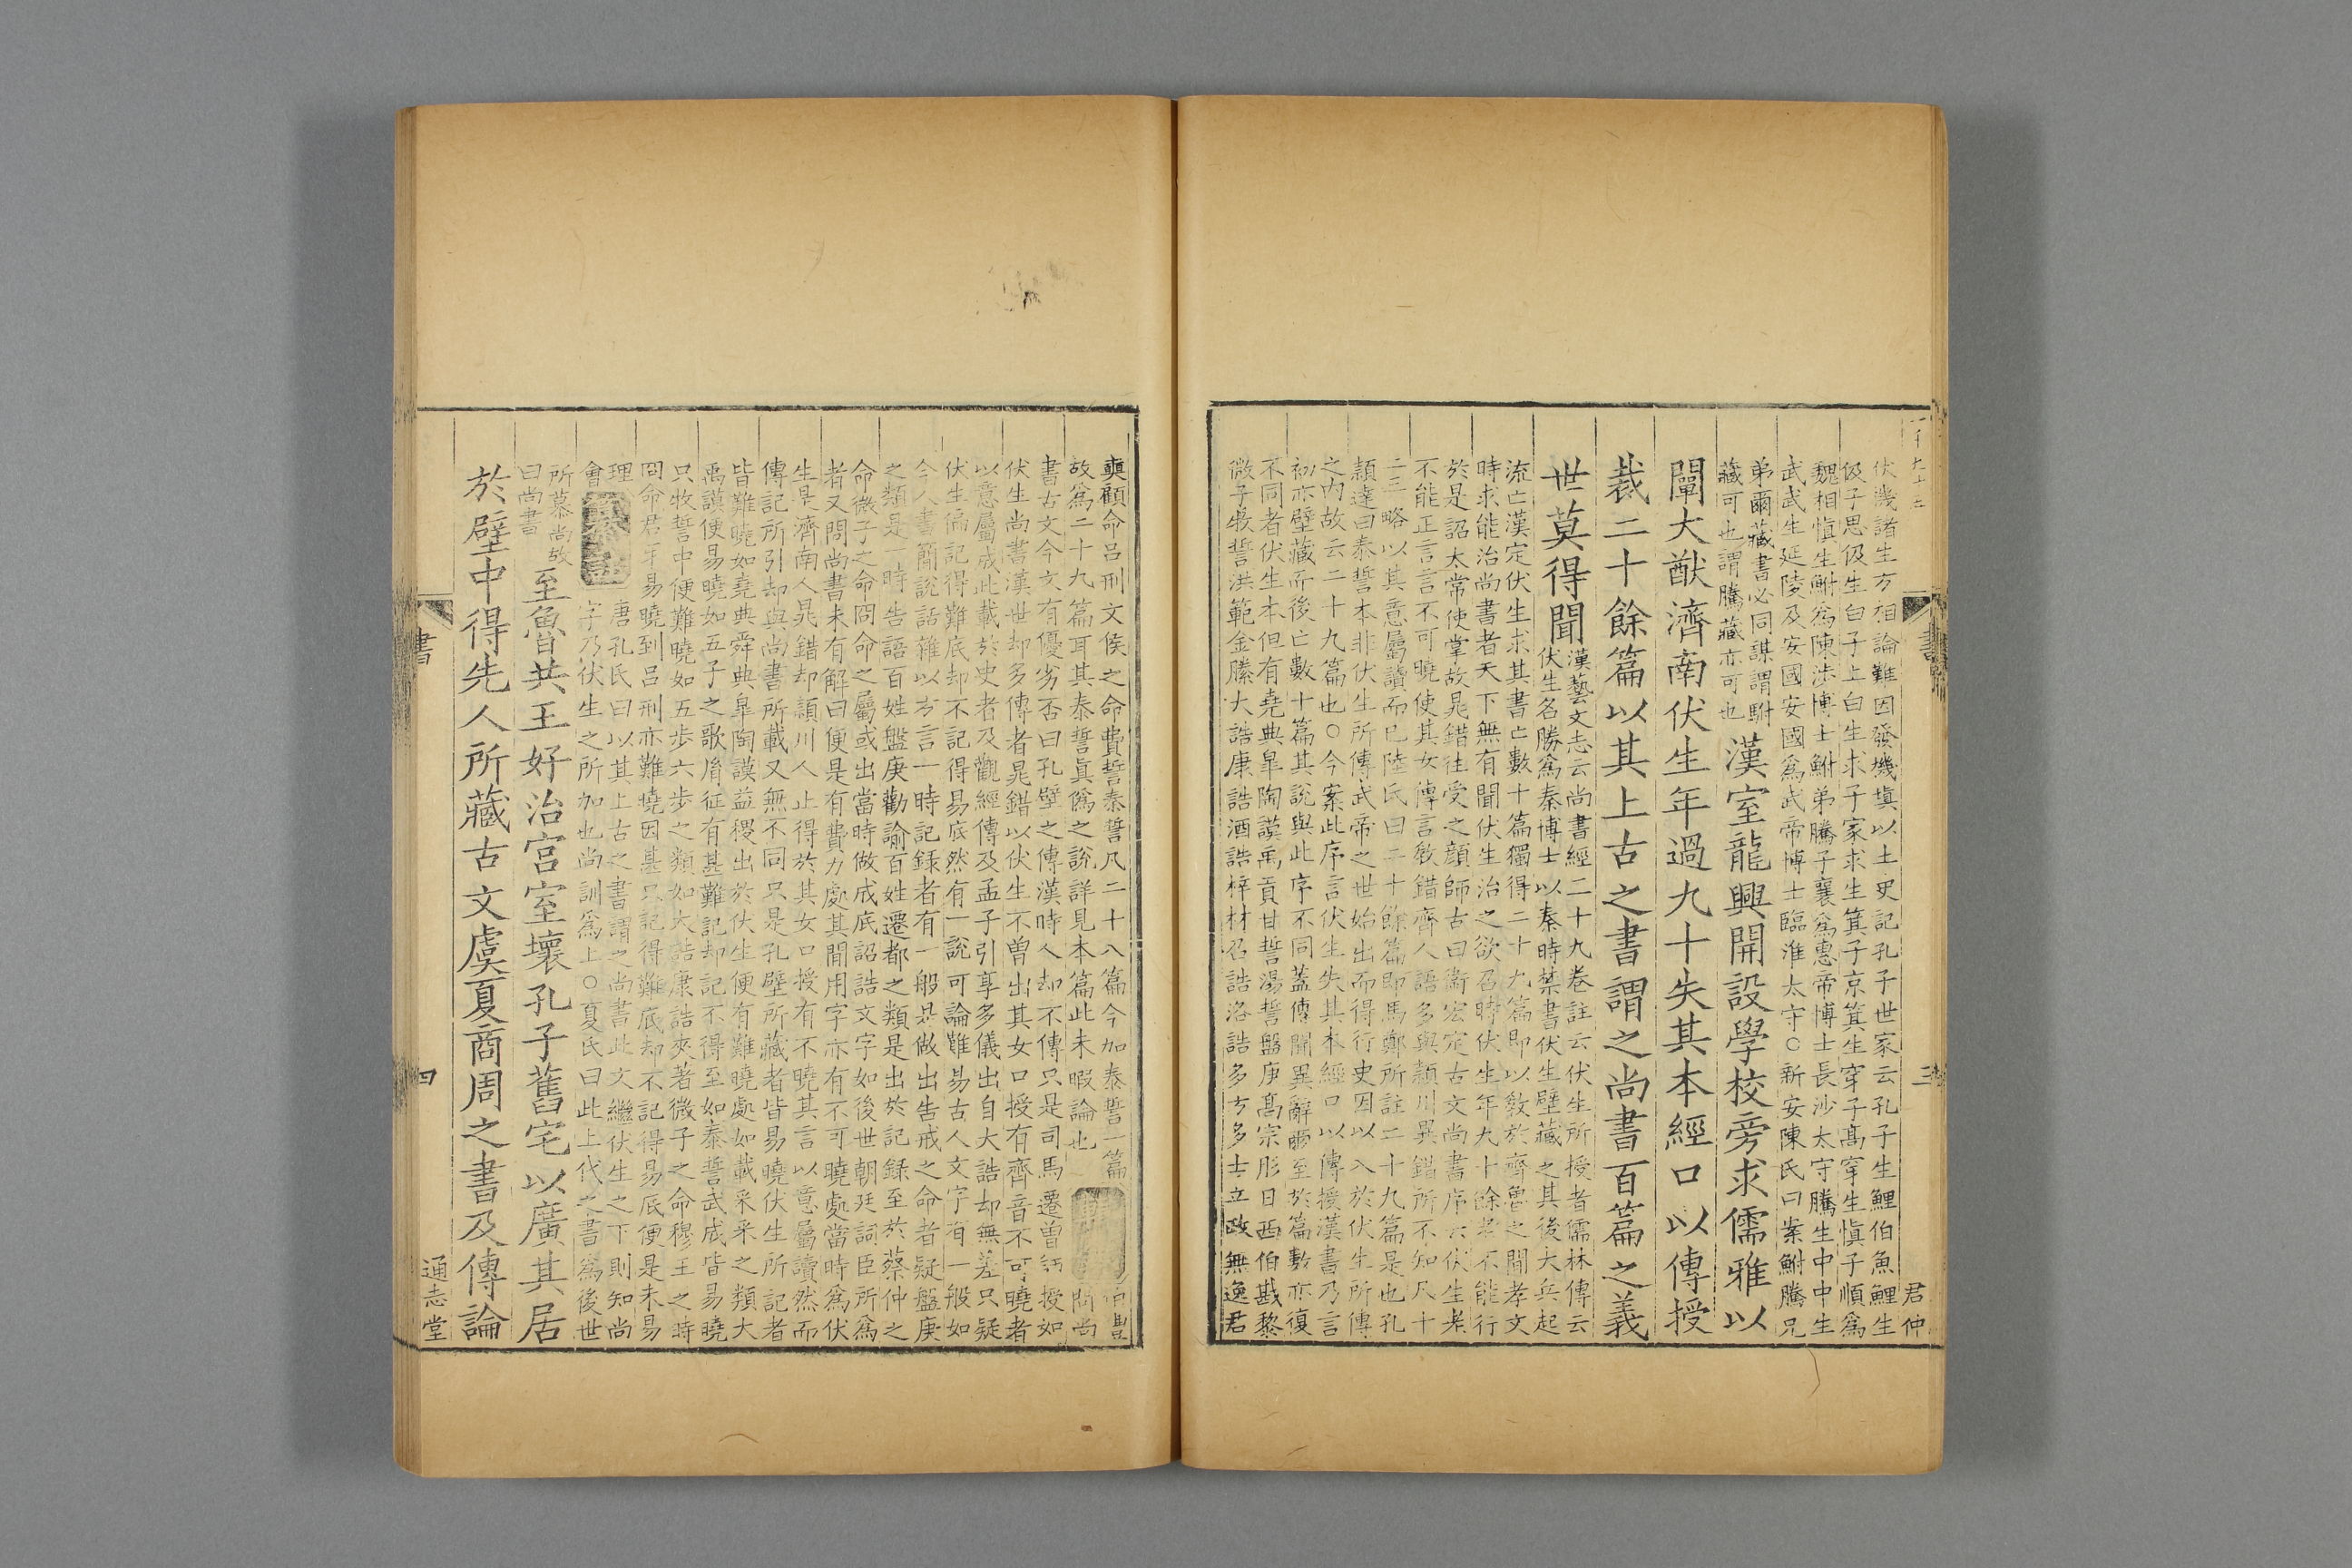 伏幾諸生方相論難因發機塡以土史記孔子世家云孔子生鯉伯魚鯉生
伋子思伋生白子上白生求子家求生箕子京箕生穿子髙穿生愼子順爲
魏相愼生鮒爲陳涉博士鮒弟騰子襄爲惠帝博士長沙太守騰生中中生
武武生延陵及安國安國爲武帝博士臨淮太守○新安陳氏曰案鮒騰兄
弟爾藏書必同謀謂鮒
藏可也謂騰藏亦可也
漢室龍興開設學校旁求儒雅以
闡大猷濟南伏生年過九十失其本經口以傳授
裁二十餘篇以其上古之書謂之尚書百篇之義
世莫得聞
漢藝文志云尚書經二十九卷註云伏生所授者儒林傳云
伏生名勝爲秦博士以秦時禁書伏生壁藏之其後大兵起
流亡漢定伏生求其書亡數十篇獨得二十九篇即以敎於齊魯之間孝文
時求能治尚書者天下無有聞伏生治之欲召時伏生年九十餘老不能行
於是詔太常使掌故晁錯往受之顔師古曰衞宏定古文尚書序云伏生老
不能正言言不可曉使其女傳言敎錯齊人語多與潁川異錯所不知凡十
二三略以其意屬讀而已陸氏曰二十餘篇即馬鄭所註二十九篇是也孔
頴達曰泰誓本非伏生所傳武帝之世始出而得行史因以入於伏生所傳
之内故云二十九篇也○今案此序言伏生失其本經口以傳授漢書乃言
初亦壁藏而後亡數十篇其說與此序不同蓋傳聞異辭爾至於篇數亦復
不同者伏生本但有堯典臯陶謨禹貢甘誓湯誓盤庚髙宗肜日西伯戡黎
微子牧誓洪範金縢大誥康誥酒誥梓材召誥洛誥多方多士立政無逸君
奭顧命吕刑文侯之命費誓泰誓凡二十八篇今加泰誓一篇
故爲二十九篇耳其泰誓眞僞之說詳見本篇此未暇論也
問尚
書古文今文有優劣否曰孔壁之傳漢時人却不傳只是司馬遷曽師授如
伏生尚書漢世却多傳者晁錯以伏生不曽出其女口授有齊音不可曉者
以意屬成此載於史者及觀經傳及孟子引享多儀出自大誥却無差只疑
伏生偏記得難底却不記得易底然有一說可論難易古人文字有一般如
今人書簡說話雜以方言一時記録者有一般是做出告戒之命者疑盤庚
之類是一時告語百姓盤庚勸諭百姓遷都之類是出於記録至於蔡仲之
命微子之命冏命之屬或出當時做成底詔誥文字如後世朝廷詞臣所爲
者又問尚書未有解曰便是有費力處其間用字亦有不可曉處當時爲伏
生是濟南人晁錯却頴川人止得於其女口授有不曉其言以意屬讀然而
傳記所引却與尚書所載又無不同只是孔壁所藏者皆易曉伏生所記者
皆難曉如堯典舜典臯陶謨益稷出於伏生便有難曉處如載采采之類大
禹謨便易曉如五子之歌胤征有甚難記却記不得至如泰誓武成皆易曉
只牧誓中便難曉如五步六步之類如大誥康誥夾著微子之命穆王之時
冏命君牙易曉到吕刑亦難曉因甚只記得難底却不記得易底便是未易
理
唐孔氏曰以其上古之書謂之尚書此文繼伏生之下則知尚
會
字乃伏生之所加也尚訓爲上○夏氏曰此上代之書爲後世
所慕尚故
曰尚書
至魯共王好治宫室壞孔子舊宅以廣其居
於壁中得先人所藏古文虞夏商周之書及傳論
書
三
君仲
書
四
通志堂